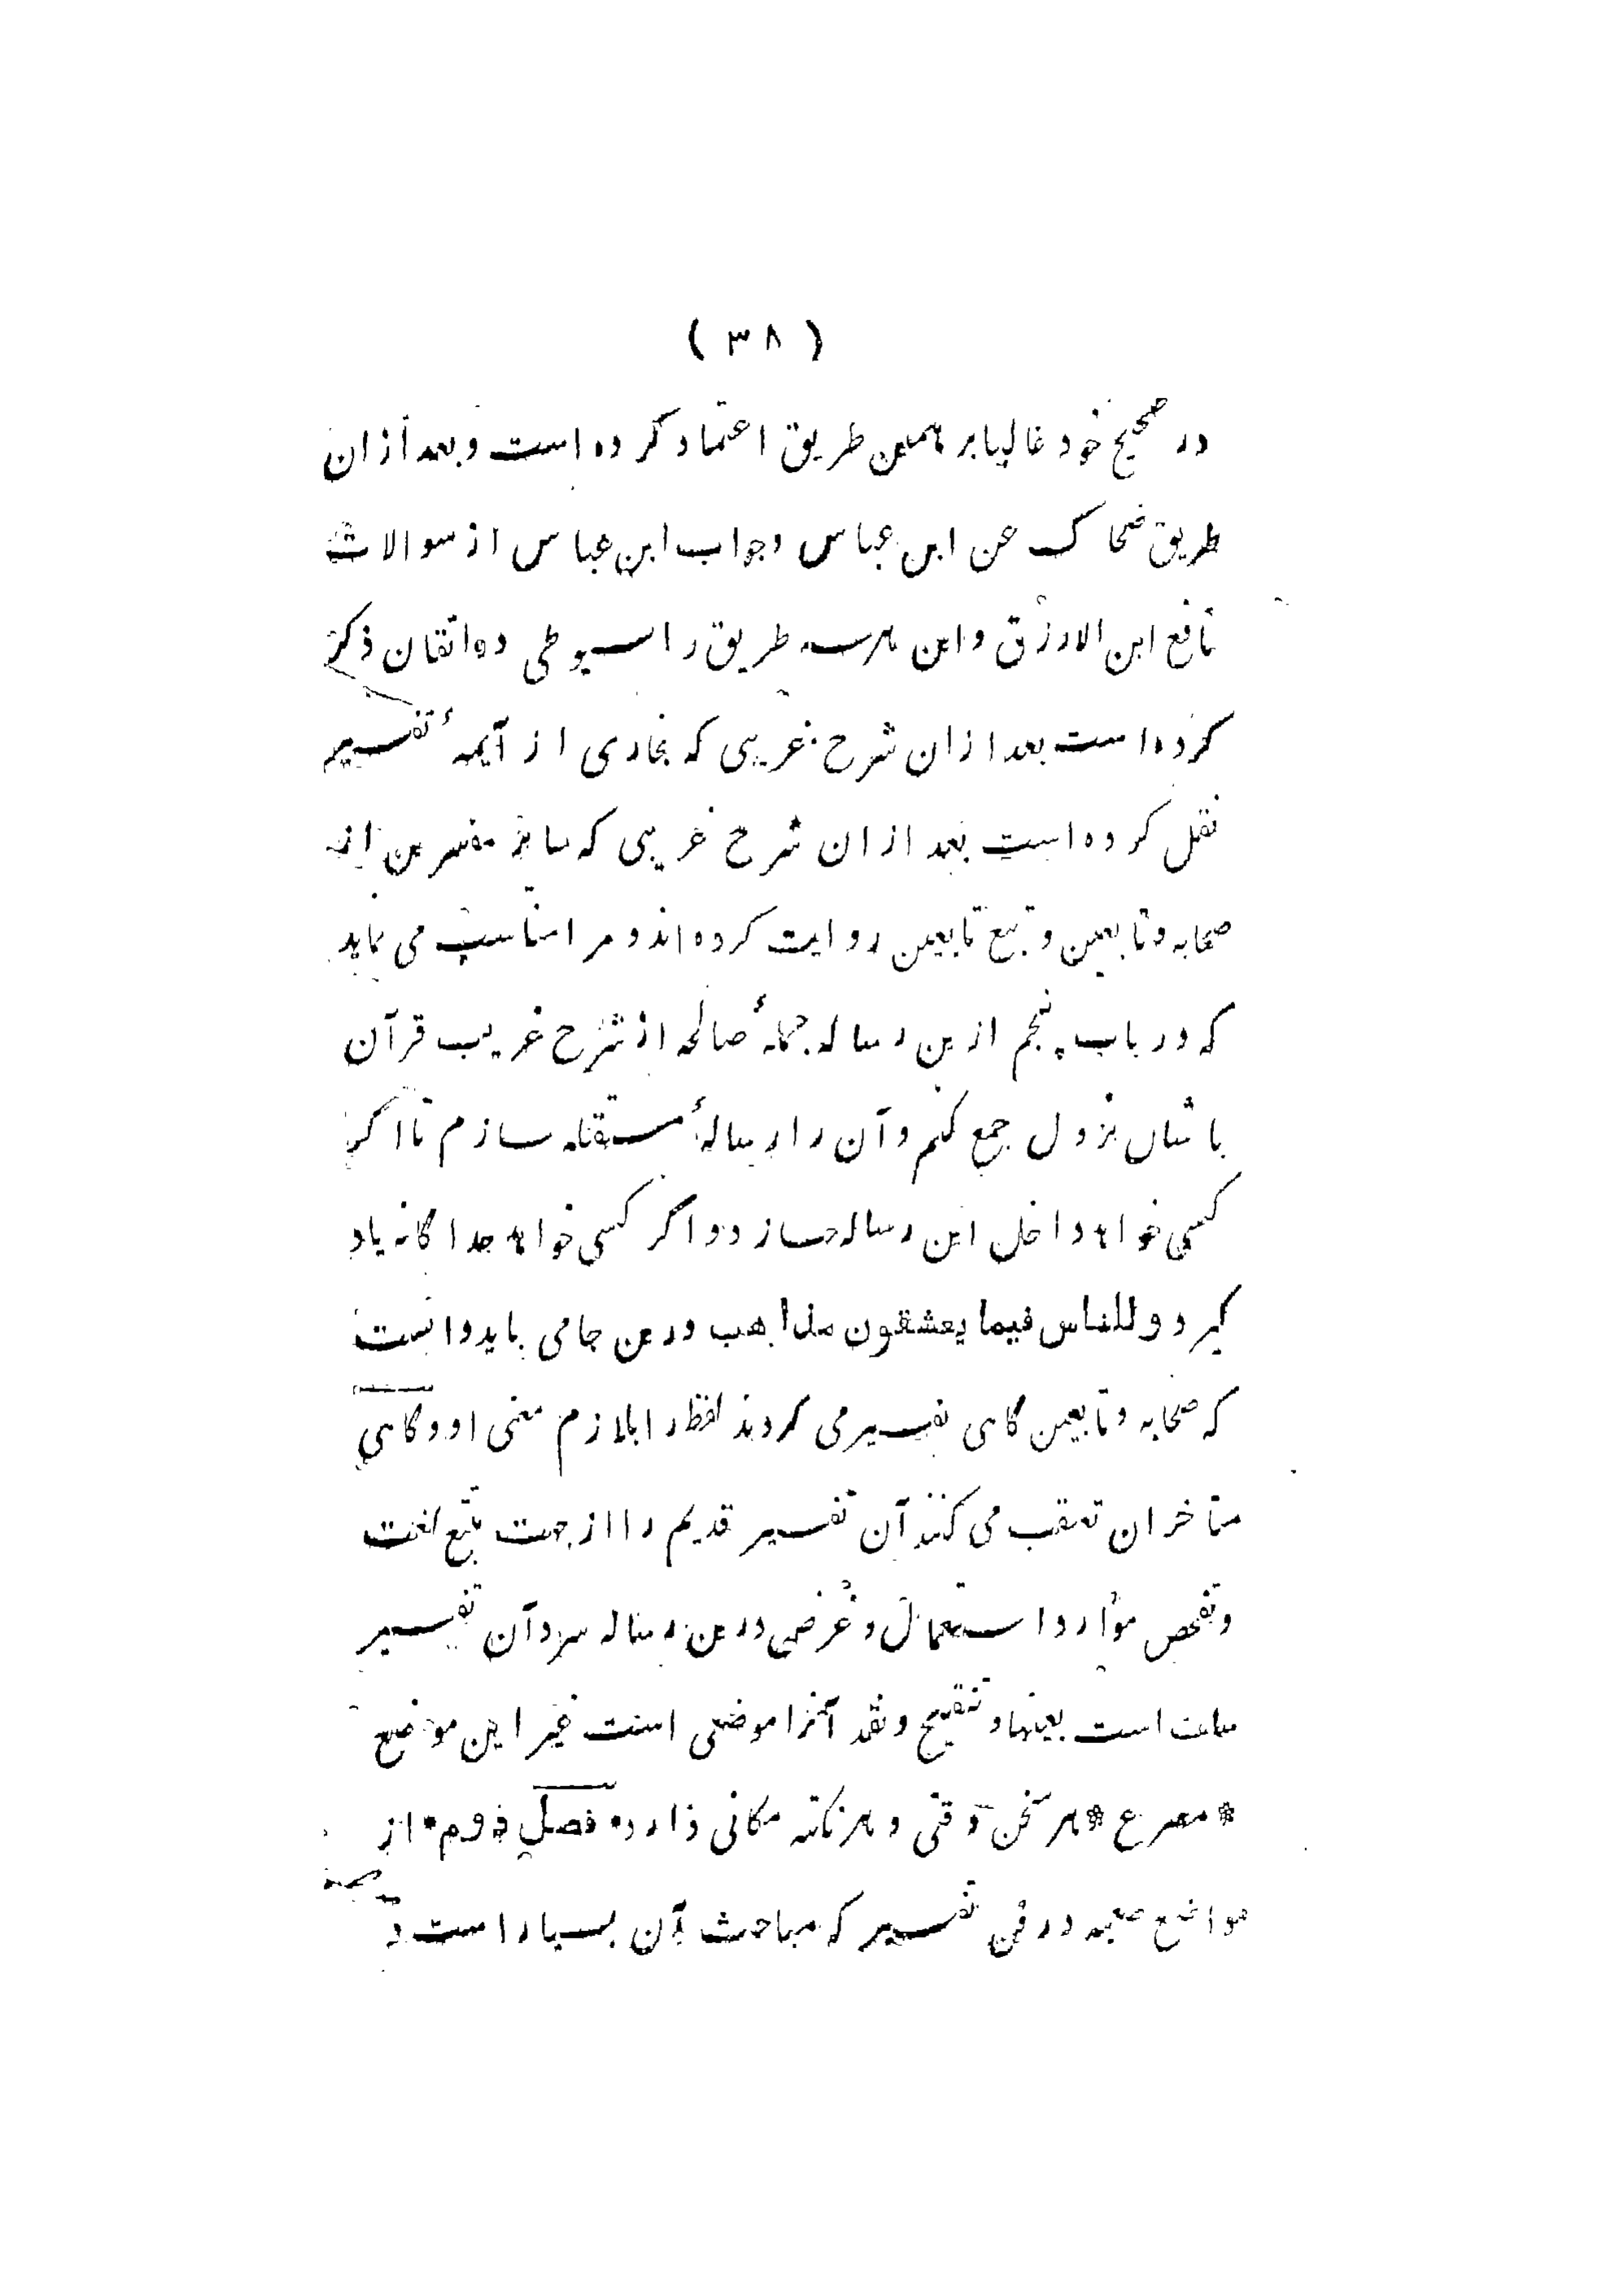 ( ۳۸ )
در صحیح خود غالبا بر همین طریق اعتماد کرده است و بعد ازان
طریق ضحاک عن ابن عباس و جواب ابن عباس از سوالات
نافع ابن الارزق و این هرسه طریق را سیوطی در اتقان ذکر
کرده است بعد ازان شرح غریبی که بخاری از آیمهٔ تفسیر
نقل کرده است بعد ازان شرح غریبی که سائر مفسرین از
صحابه و تابعین و تبع تابعین روایت کرده اند و مرا مناسب می نماید
که در باب پنجم ازین رساله جملهٔ صالحه از شرح غریب قرآن
با شان نزول جمع کنم و آن را رسالهٔ مستقله سازم تا اگر
کسی خواهد داخل این رساله سازد و اگر کسی خواهد جداگانه یاد
گیرد و للناس فیما یعشقون مذاهب درین جا می باید دانست
که صحابه و تابعین گاهی تفسیر می کردند لفظ را بلازم معنی او و گاهی
متاخران تعقب می کنند آن تفسیر قدیم را از جهت تتبع لغت
و تفحص موارد استعمال و غرض درین رساله سرد آن تفسیر
سلف است بعینها و تنقیح و نقد آنرا موضعی است غیر این موضع
* مصرع * هر سخن وقتی و هر نکته مکانی دارد * فصل دوم * از
مواضع صعبه در فن تفسیر که مباحث آن بسیار است